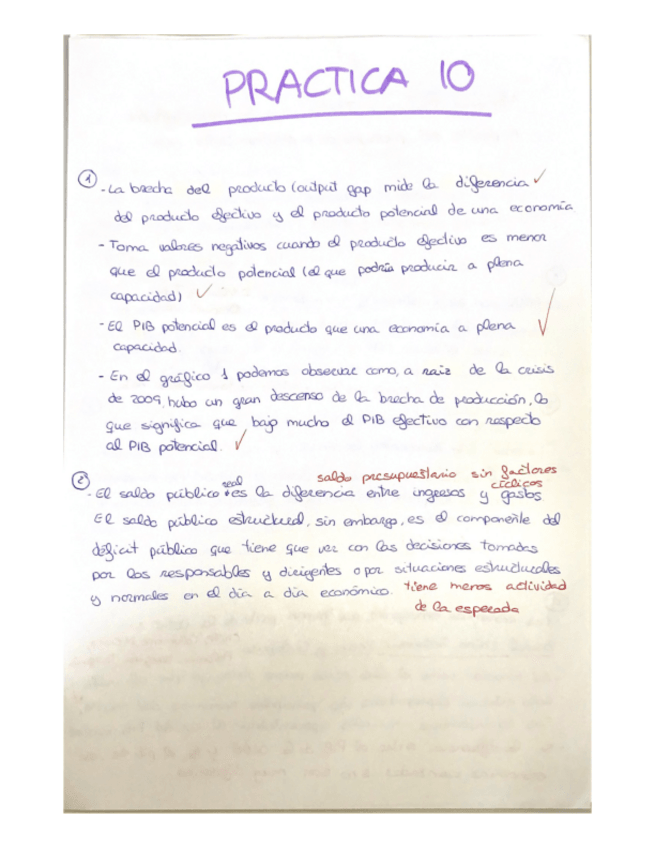 PRACTICA 10
① - La brecha del producto (output gap mide la diferencia ✓
del producto efectivo y el producto potencial de una economía
- Toma valores negativos cuando el producto efectivo es menor
que el producto potencial (el que podría producir a plena
capacidad) ✓
- El PIB potencial es el producto que una economía a plena ✓
capacidad.
- En el gráfico 1 podemos observar como, a raiz de la crisis
de 2009, hubo un gran descenso de la brecha de producción, lo
que significa que, bajo mucho el PIB efectivo con respecto
al PIB potencial. ✓
② saldo presupuestario sin factores
cíclicos
real
- El saldo público es la diferencia entre ingresos y gastos
El saldo público estructural, sin embargo, es el componente del
déficit público que tiene que ver con las decisiones tomadas
por los responsables y dirigentes o por situaciones estructurales
y normales en el día a día económico. tiene menos actividad
de la esperada